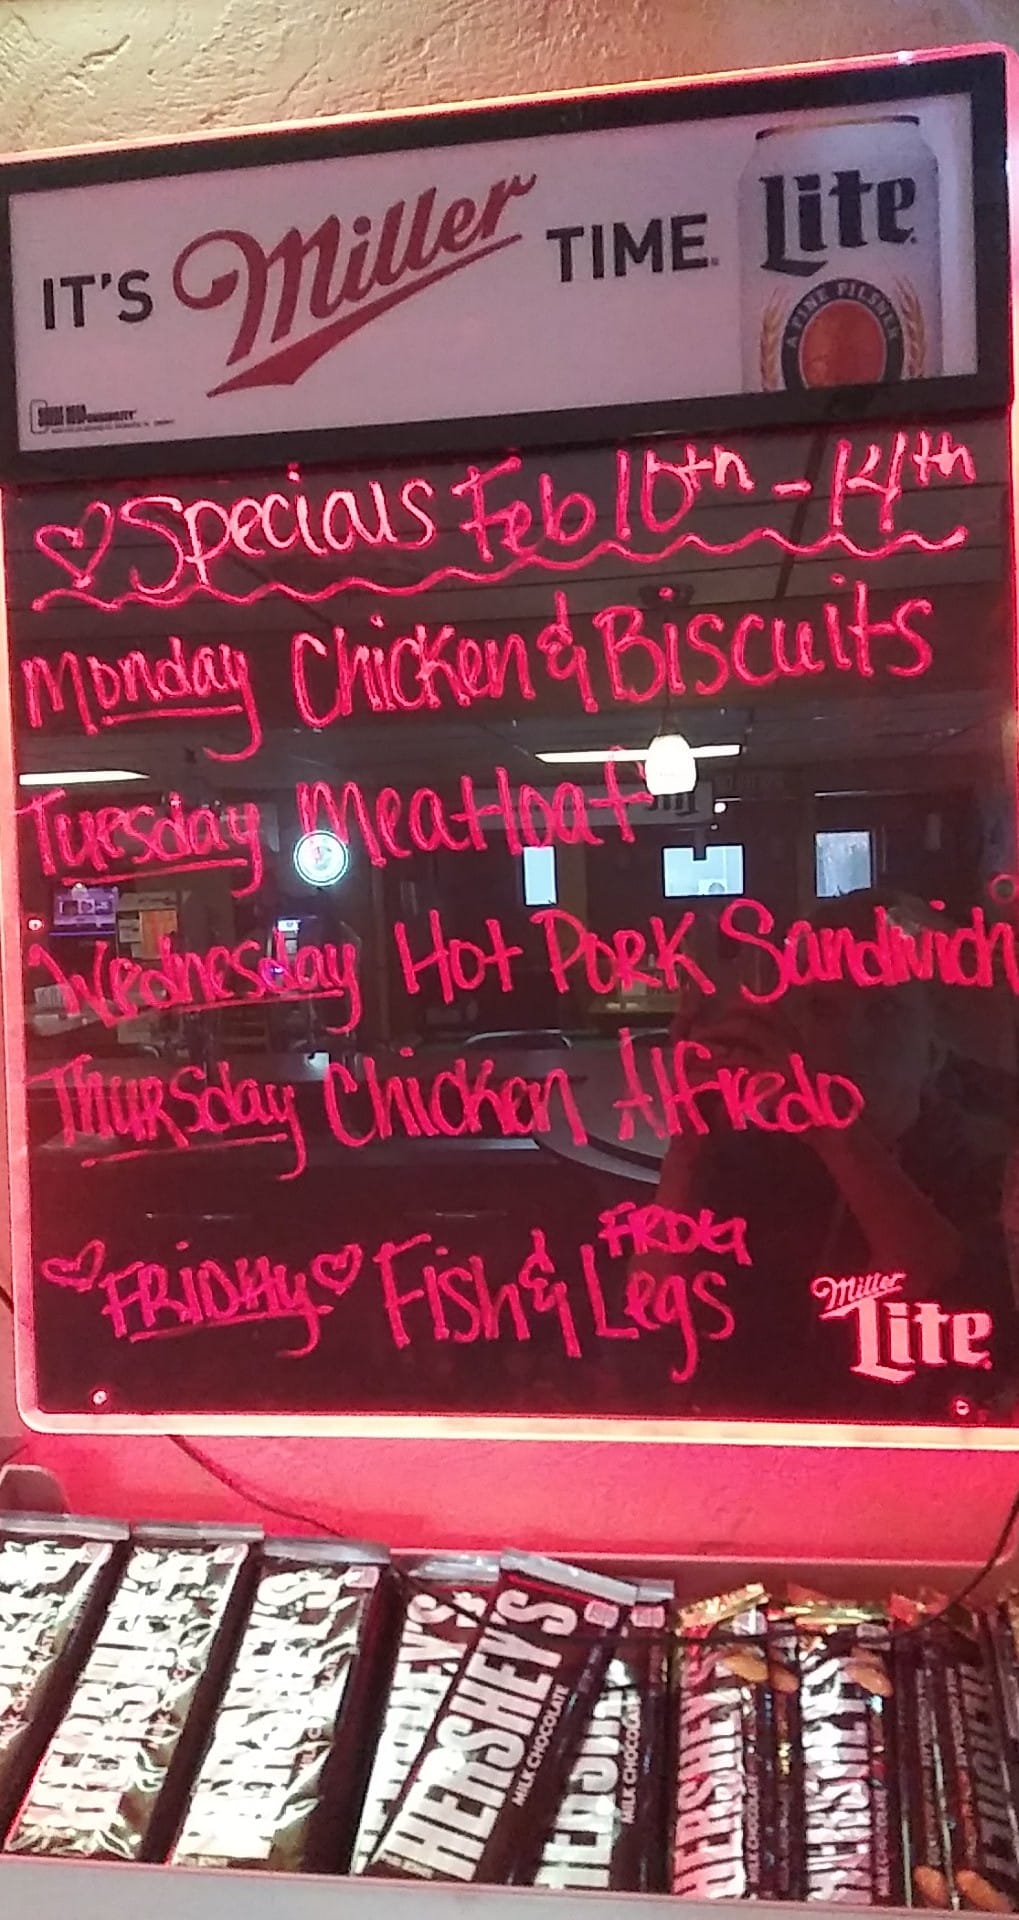 IT'S Miller TIME. Lite
A FINE PILSNER
Specials Feb 10th - 14th
Monday Chicken & Biscuits
Tuesday Meatloaf
Wednesday Hot Pork Sandwich
Thursday Chicken Alfredo
FRIDAY Fish & FROG Legs
Miller
Lite
HERSHEY'S
HERSHEY'S
HERSHEY'S
HERSHEY'S
HERSHEY'S
MILK CHOCOLATE
HERSHEY'S
MILK CHOCOLATE
HERSHEY'S
HERSHEY'S